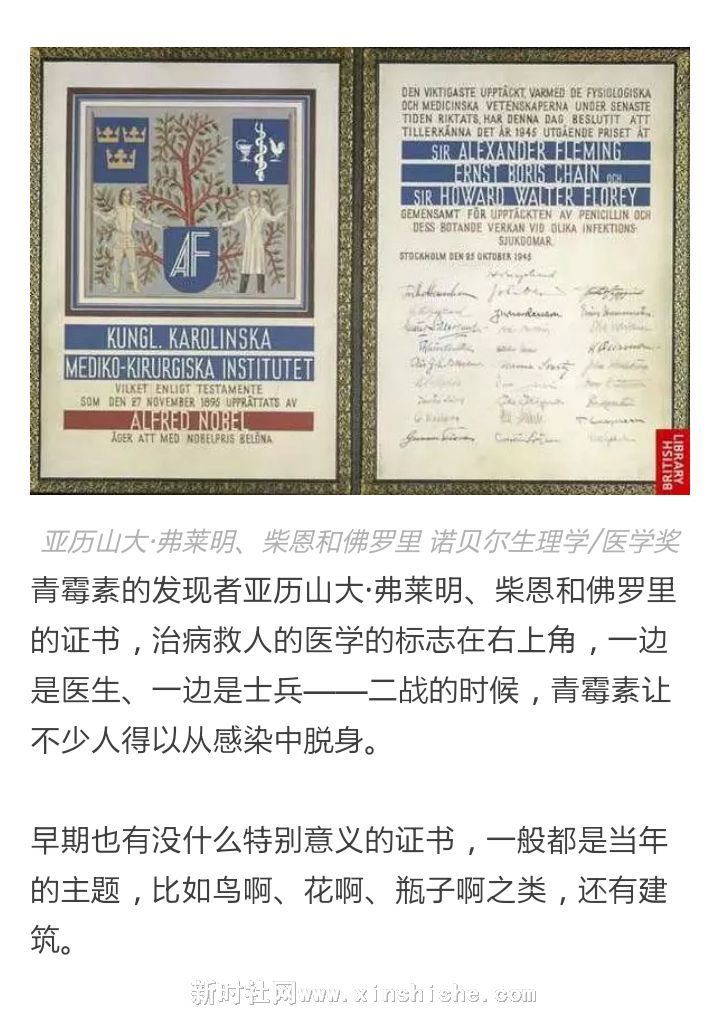 KUNGL. KAROLINSKA
MEDIKO-KIRURGISKA INSTITUTET
VILKET ENLIGT TESTAMENTE
SOM DEN 27 NOVEMBER 1895 UPPRÄTTATS AV
ALFRED NOBEL
ÄGER ATT MED NOBELPRIS BELÖNA
AF
DEN VIKTIGASTE UPPTÄCKT, VARMED DE FYSIOLOGISKA
OCH MEDICINSKA VETENSKAPERNA UNDER SENASTE
TIDEN RIKTATS, HAR DENNA DAG BESLUTIT ATT
TILLERKÄNNA DET ÅR 1945 UTGÅENDE PRISET ÅT
SIR ALEXANDER FLEMING
ERNST BORIS CHAIN OCH
SIR HOWARD WALTER FLOREY
GEMENSAMT FÖR UPPTÄCKTEN AV PENICILLIN OCH
DESS BOTANDE VERKAN VID OLIKA INFEKTIONS-
SJUKDOMAR.
STOCKHOLM DEN 25 OKTOBER 1945
BRITISH
LIBRARY
亚历山大·弗莱明、柴恩和佛罗里 诺贝尔生理学/医学奖
青霉素的发现者亚历山大·弗莱明、柴恩和佛罗里
的证书，治病救人的医学的标志在右上角，一边
是医生、一边是士兵——二战的时候，青霉素让
不少人得以从感染中脱身。
早期也有没什么特别意义的证书，一般都是当年
的主题，比如鸟啊、花啊、瓶子啊之类，还有建
筑。
新时社网www.xinshishe.com